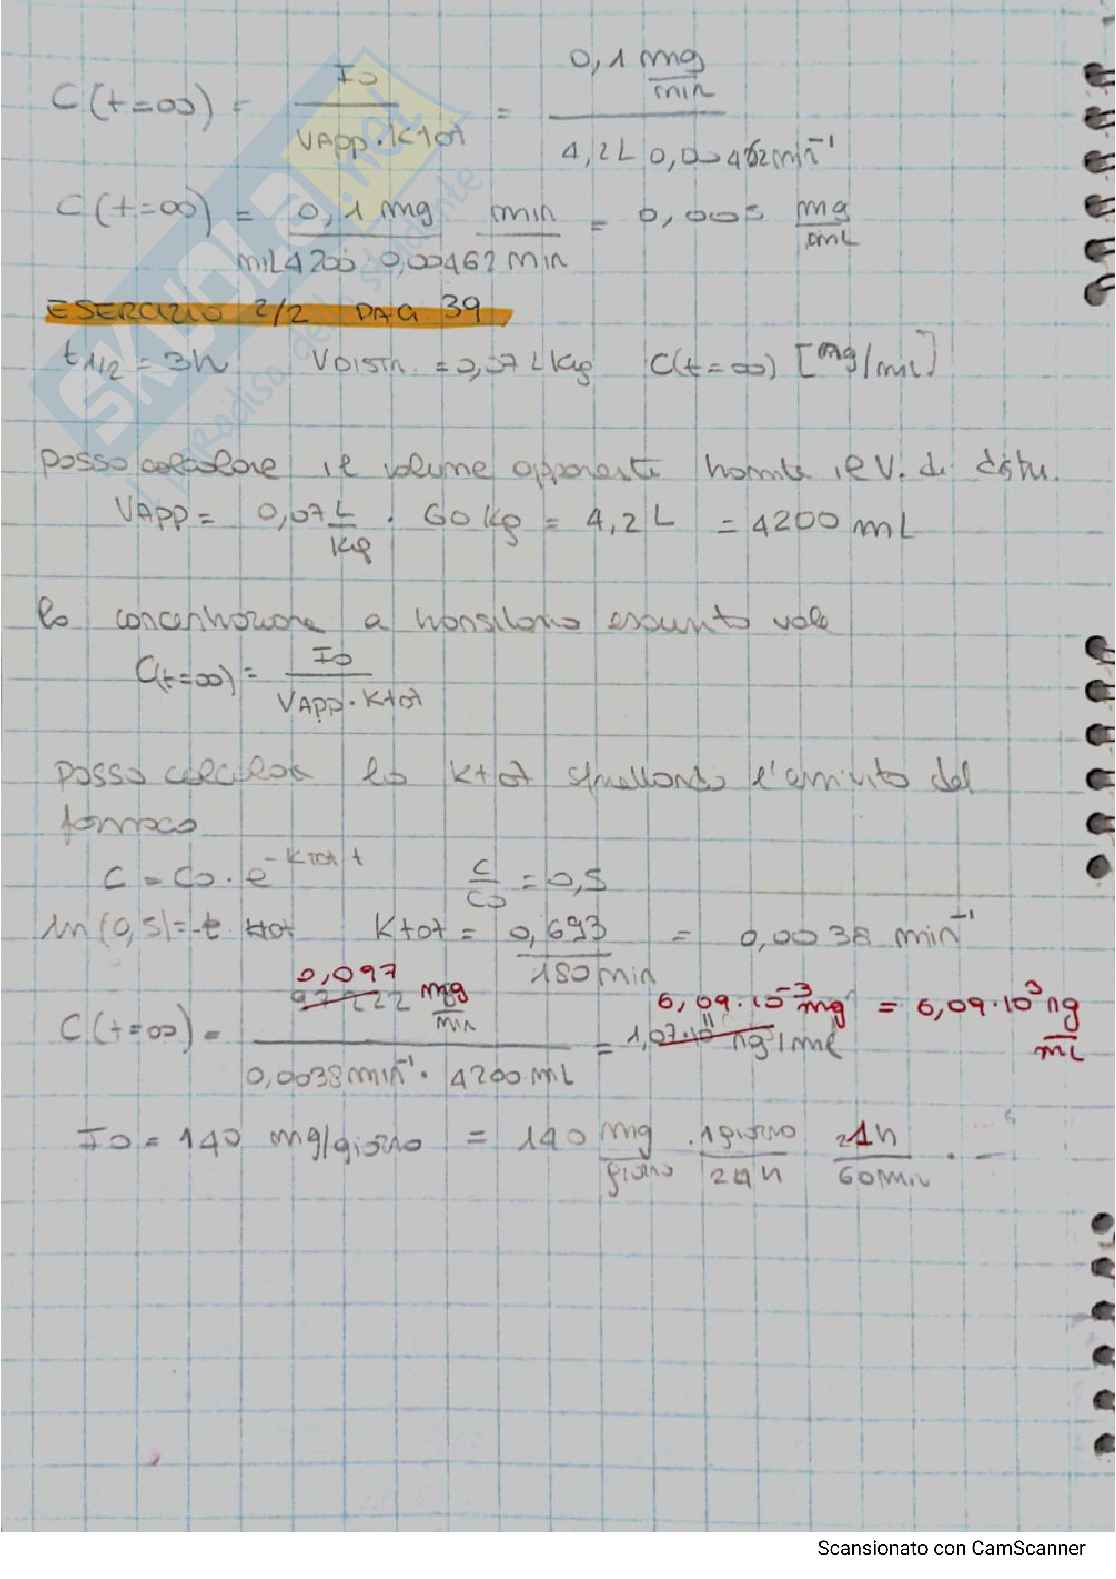 C(t=∞) = I0 / (VAPP · Ktot) = 0,1 mg/min / (4,2L 0,00462 min⁻¹)
C(t=∞) = 0,1 mg / (mL 4200 0,00462 min) min = 0,005 mg/mL
ESERCIZIO 2/2 PAG 39
t1/2 = 3h VDISTR. = 0,07 L Kg C(t=∞) [mg/mL]
posso calcolare il volume apparente tramite il V. di distr.
VAPP = 0,07 L/Kg · 60 Kg = 4,2 L = 4200 mL
la concentrazione a transitorio esaurito vale
C(t=∞) = I0 / (VAPP · Ktot)
posso calcolare la Ktot sfruttando l'emivita del
farmaco
C = C0 · e^(-Ktot t) C/C0 = 0,5
ln(0,5) = -t · Ktot Ktot = 0,693 / 180 min = 0,0038 min⁻¹
0,097
C(t=∞) = 97222 mg/min / (0,0038 min⁻¹ · 4200 mL) = 1,07·10¹¹ ng/mL 6,09·10⁻³ mg = 6,09·10³ ng/mL
I0 = 140 mg/giorno = 140 mg/giorno · 1 giorno/24 h 1h/60 min ·
SKUOLA.net
il paradiso dello studente
Scansionato con CamScanner